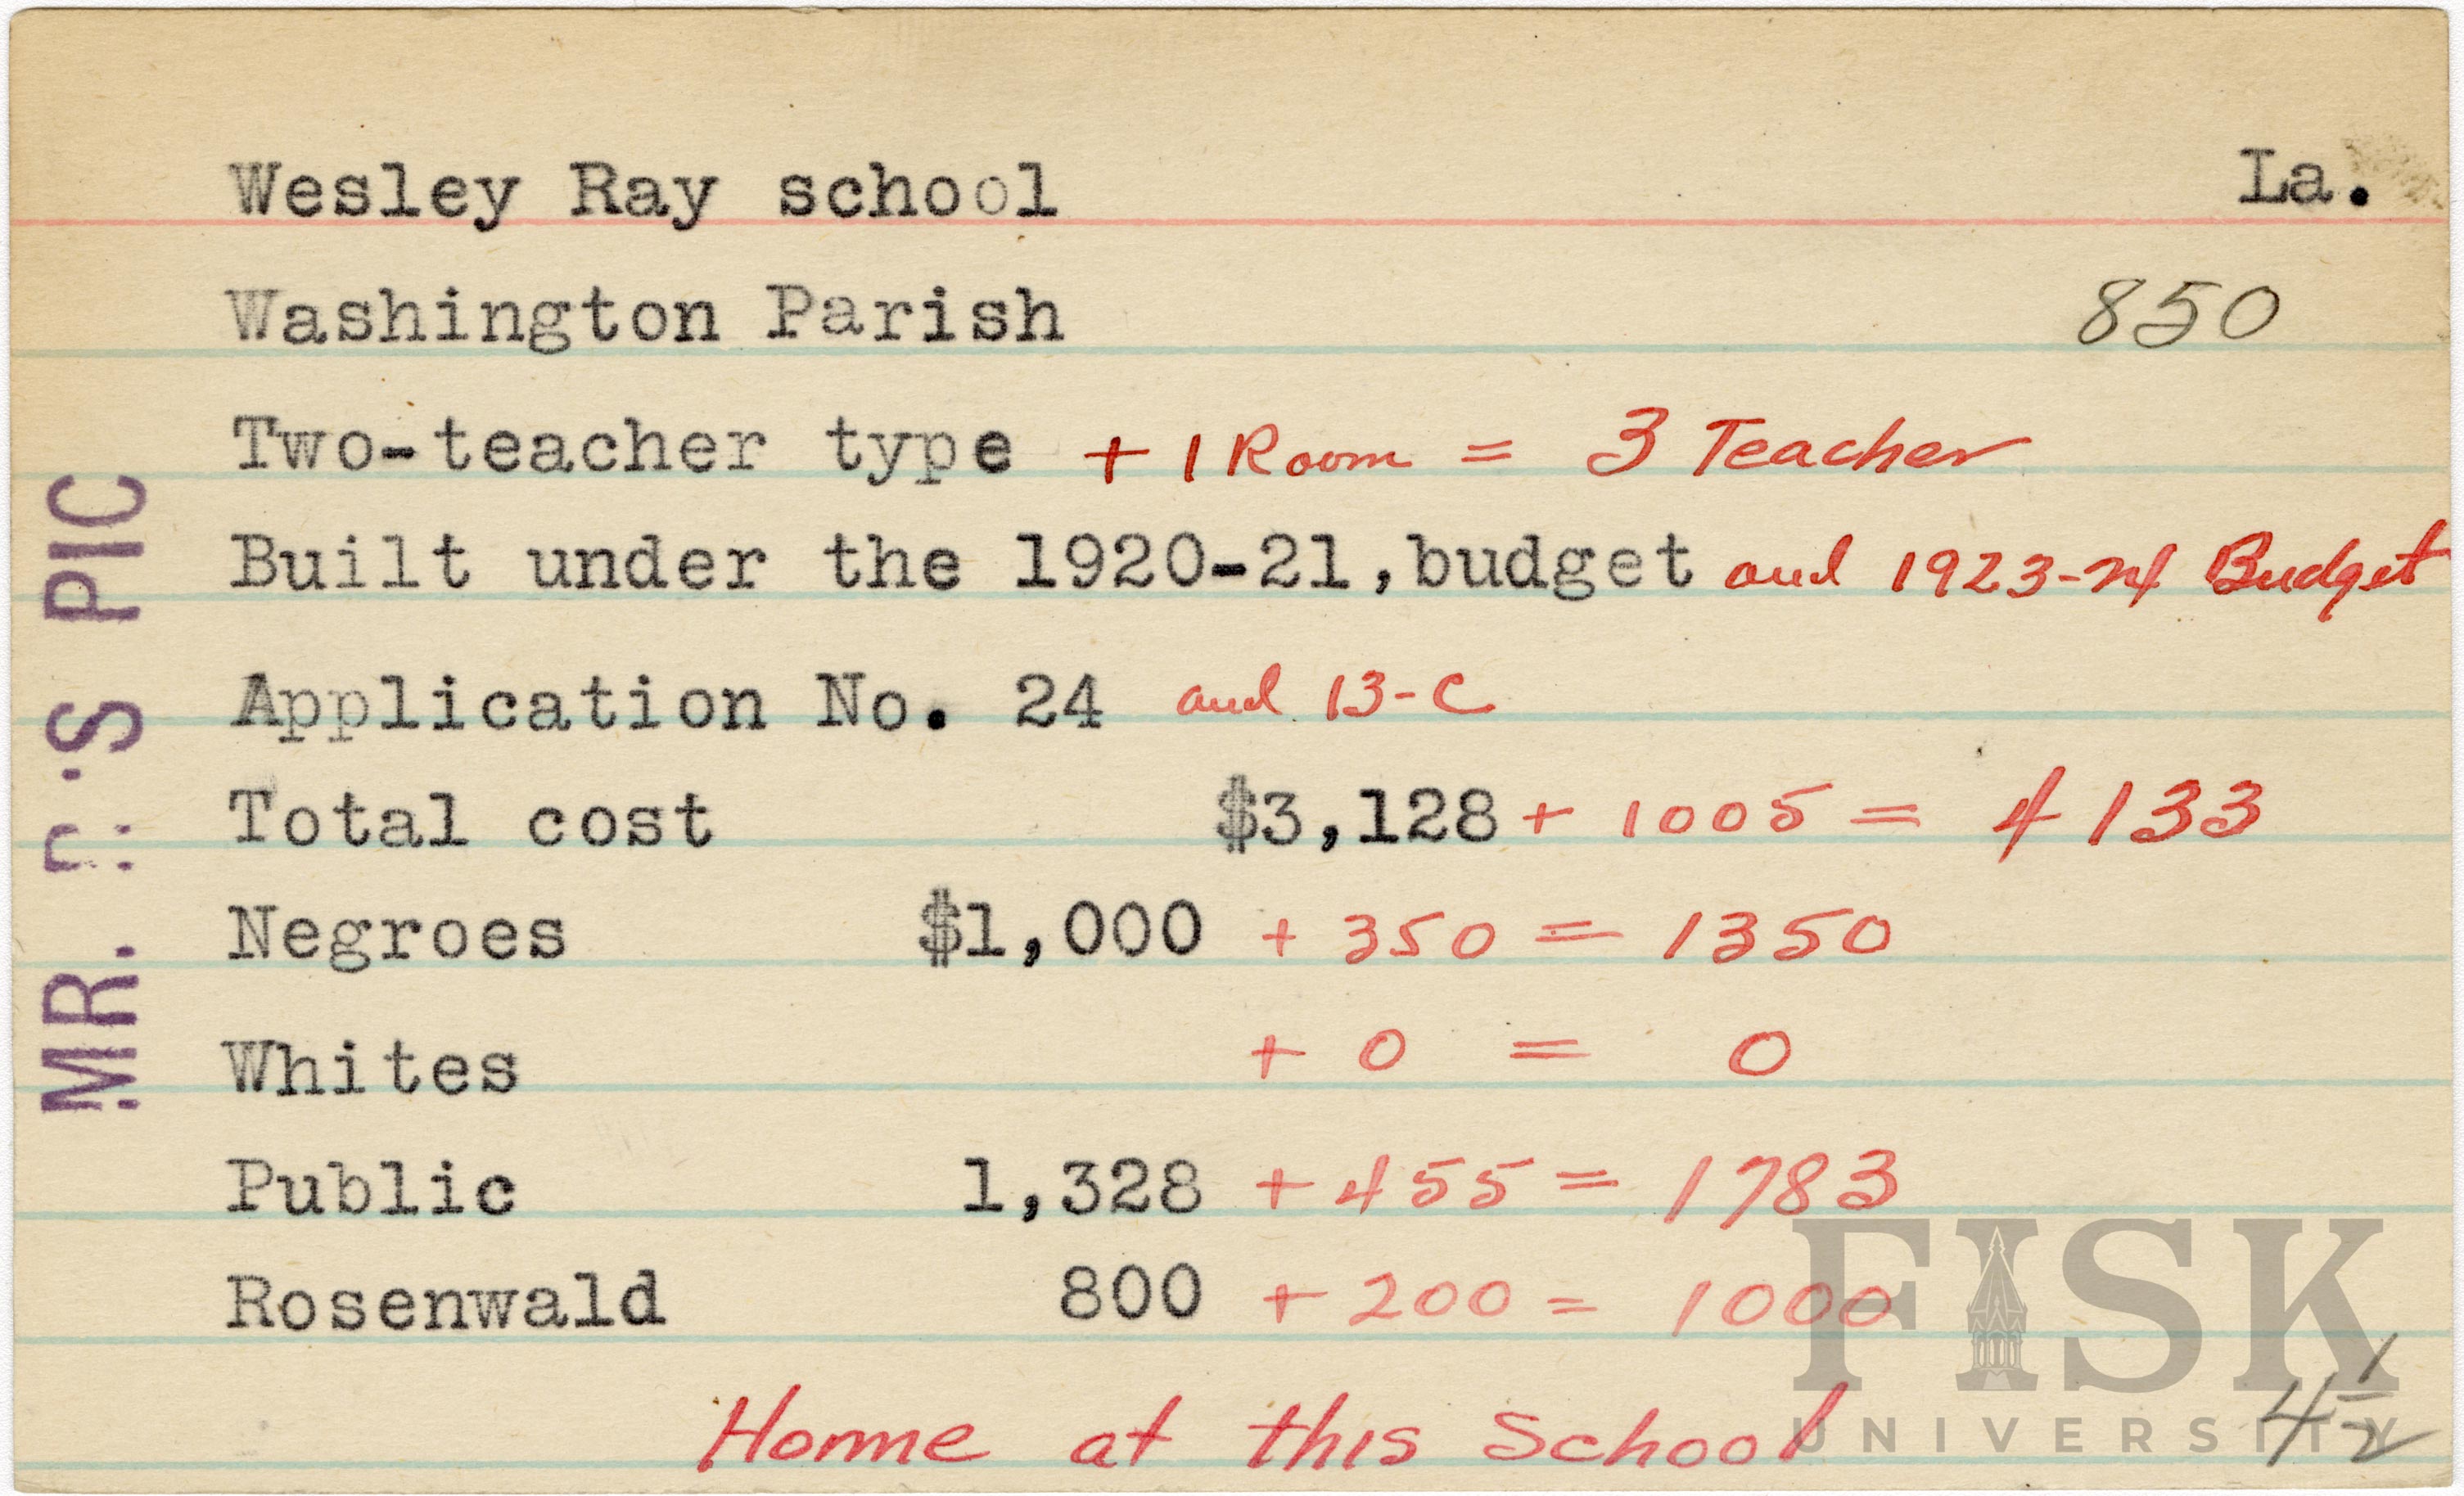 Wesley Ray school La.
Washington Parish 850
Two-teacher type + 1 Room = 3 Teacher
Built under the 1920-21,budget and 1923-24 Budget
Application No. 24 and 13-C
Total cost $3,128 + 1005 = 4133
Negroes $1,000 + 350 = 1350
Whites + 0 = 0
Public 1,328 + 455 = 1783
Rosenwald 800 + 200 = 1000
Home at this School 4 1/2
MR. :'S PIC
FISK
UNIVERSITY